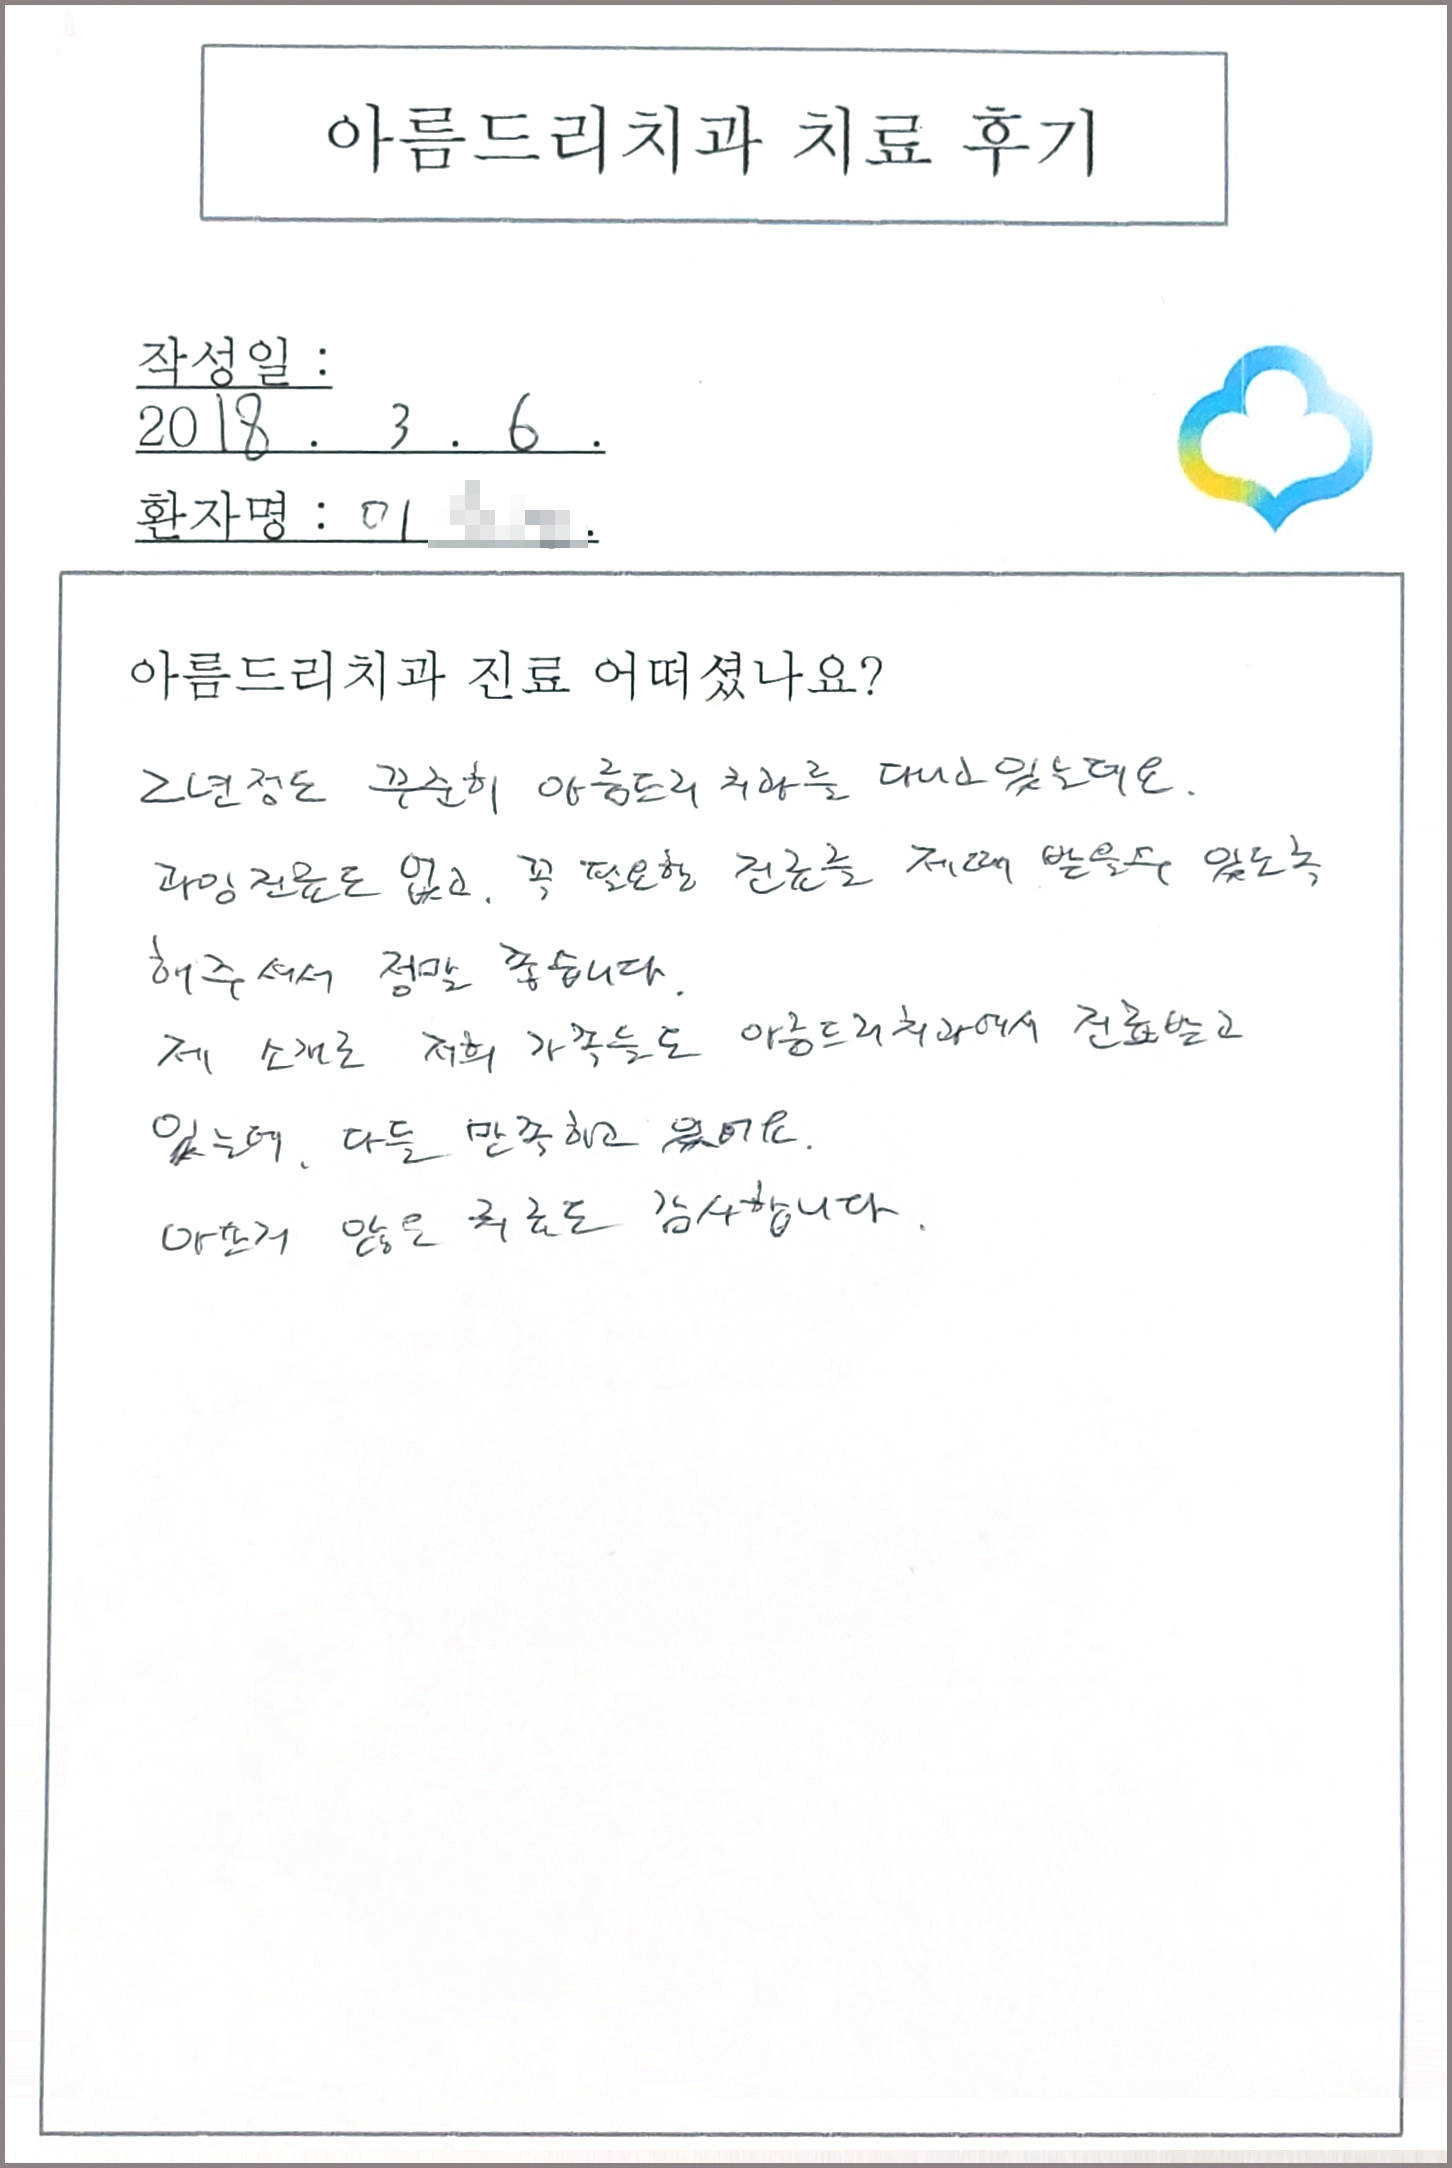 아름드리치과 치료 후기
작성일 :
2018 . 3 . 6 .
환자명 : 이 .
아름드리치과 진료 어떠셨나요?
2년정도 꾸준히 아름드리 치과를 다니고있는데요.
과잉진료도 없고, 꼭 필요한 진료를 제때 받을수 있도록
해주셔서 정말 좋습니다.
제 소개로 저희 가족들도 아름드리치과에서 진료받고
있는데, 다들 만족하고 있어요.
아프지 않은 치료도 감사합니다.